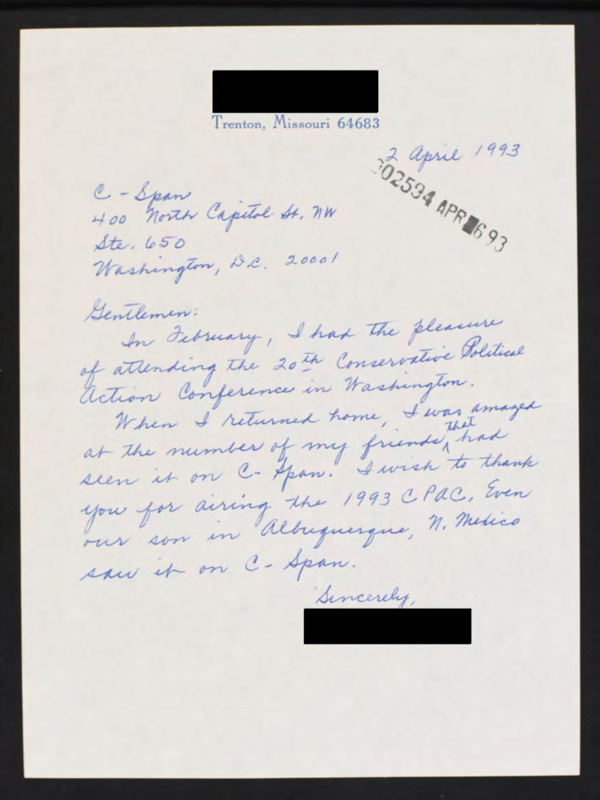 Trenton, Missouri 64683
2 April 1993
002594 APR 6 93
C-Span
400 North Capitol St. NW
Ste. 650
Washington, D.C. 20001
Gentlemen:
In February, I had the pleasure
of attending the 20th Conservative Political
Action Conference in Washington.
When I returned home, I was amazed
at the number of my friends that had
seen it on C-Span. I wish to thank
you for airing the 1993 CPAC. Even
our son in Albuquerque, N. Mexico
saw it on C-Span.
Sincerely,